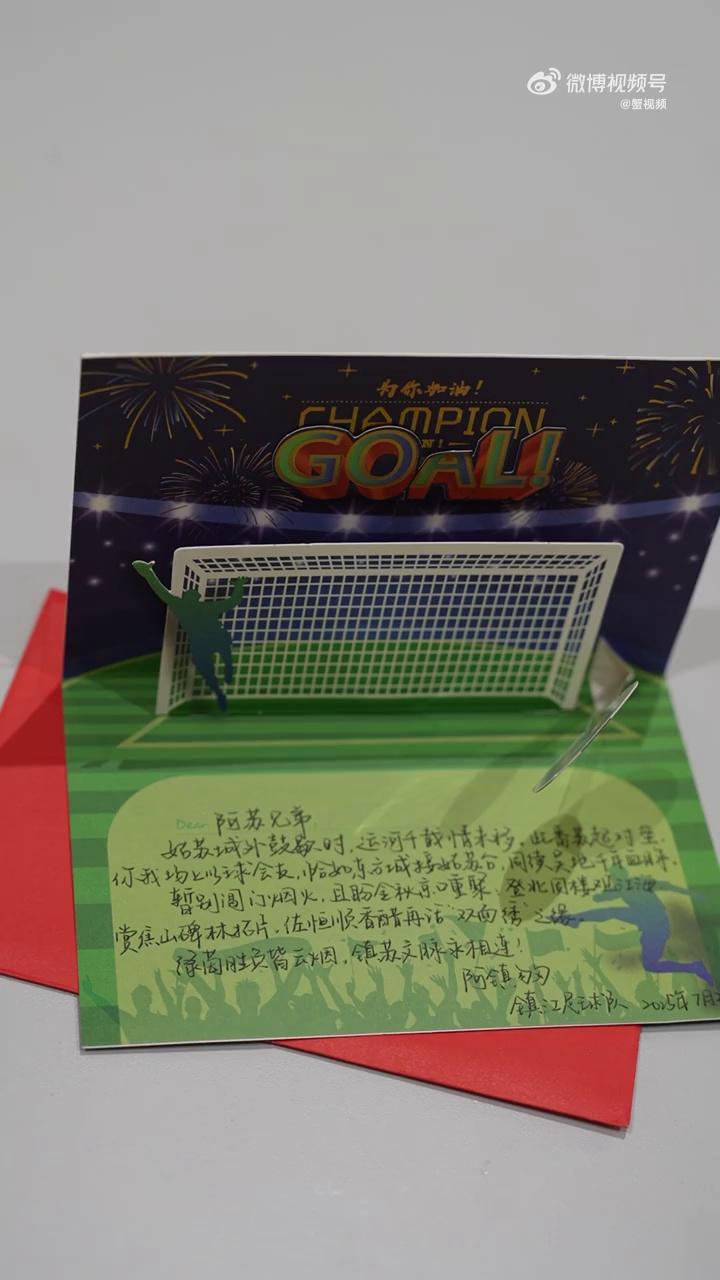 微博视频号
@蟹视频
为你加油！
CHAMPION
N！
GOAL!
Dear 阿苏兄弟
姑苏城外鼓歇时，运河千载情未移。此番苏超对垒，
你我场上以球会友，恰如东方城接姑苏台，同续吴地千年血脉。
暂别阊门烟火，且盼金秋京口重聚。登北固楼观江海，
赏焦山碑林拓片，佐恒顺香醋再话“双面绣”之缘。
绿茵胜负皆云烟，镇苏文脉永相连！
阿镇
镇江足球队 2025年7月